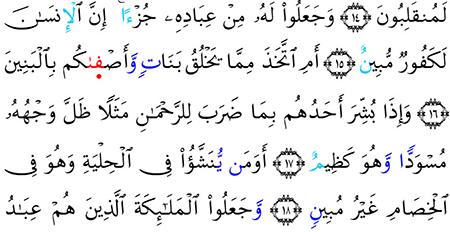 لَمُنقَلِبُونَ ﴿١٤﴾ وَجَعَلُوا۟ لَهُۥ مِنْ عِبَادِهِۦ جُزْءًا ۚ إِنَّ الْإِنسَـٰنَ
لَكَفُورٌ مُّبِينٌ ﴿١٥﴾ أَمِ اتَّخَذَ مِمَّا يَخْلُقُ بَنَاتٍ وَأَصْفَىٰكُم بِالْبَنِينَ
﴿١٦﴾ وَإِذَا بُشِّرَ أَحَدُهُم بِمَا ضَرَبَ لِلرَّحْمَـٰنِ مَثَلًا ظَلَّ وَجْهُهُۥ
مُسْوَدًّا وَهُوَ كَظِيمٌ ﴿١٧﴾ أَوَمَن يُنَشَّؤُا۟ فِى الْحِلْيَةِ وَهُوَ فِى
الْخِصَامِ غَيْرُ مُبِينٍ ﴿١٨﴾ وَجَعَلُوا۟ الْمَلَـٰٓئِكَةَ الَّذِينَ هُمْ عِبَـٰدُ